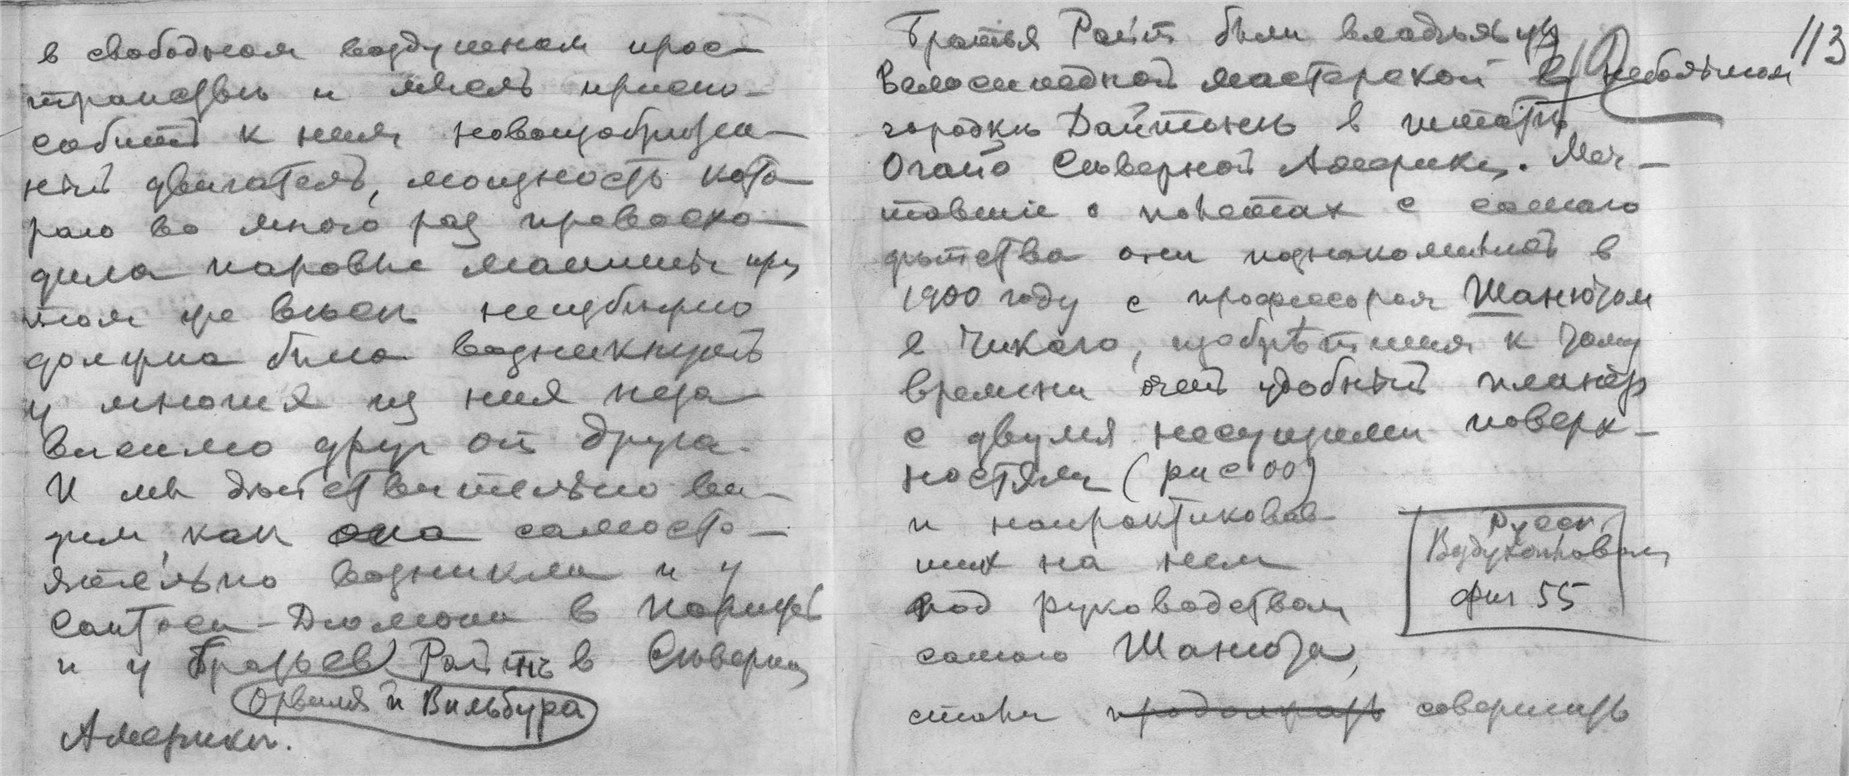 в свободном воздушном прос-
транствѣ и мысль приспо-
собить к ним новоизобрѣтен-
ный двигатель, мощность кото
раго во много раз превосхо-
дила паровые машины при
том же вѣсѣ неизбѣжно
должна была возникнуть
у многих из них неза
висимо друг от друга.
И мы дѣйствительно ви-
дим, как она самосто-
ятельно возникла и у
Сантоса-Дюмона в Парижѣ
и у братьев Райт в Сѣверной
Орвиля и Вильбура
Америкѣ.
113
Братья Райт были владѣльцы
велосипедной мастерской в небольшом
городкѣ Дайтонѣ в штатѣ
Огайо Сѣверной Америки. Меч-
тавшие о полетах с самаго
дѣтства они познакомились в
1900 году с профессором Шанютом
в Чикаго, изобрѣтшим к тому
времени очень удобный планер
с двумя несущими поверх-
ностями (рис 00)
и напрактиковав-
ших на нем
под руководством
самого Шанюта,
стали продолжать совершать
Русск.
Воздухоплаван
фиг 55